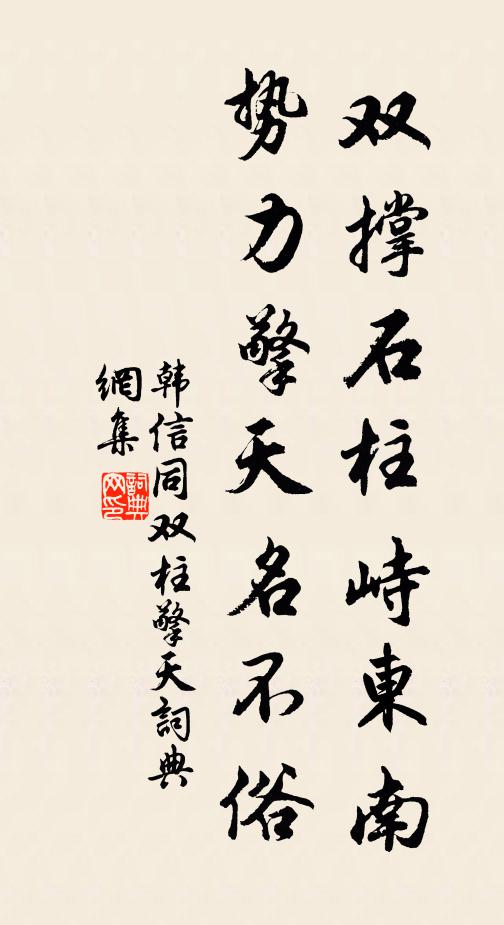 双撑石柱峙東南
势力擎天名不俗
韩信同双柱擎天詞典
網集
詞典
网印